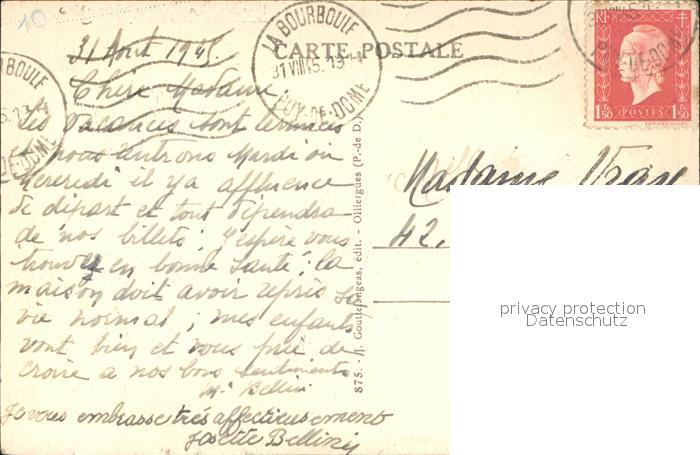 10
31 Août 1945
Chère Madame
Les vacances sont terminées
et nous rentrons Mardi ou
Mercredi il y a affluence
de départ et tout dépendra
de nos billets; j'espère vous
trouver en bonne santé; la
maison doit avoir repris sa
vie normal; mes enfants
vont bien et vous prie de
croire a nos bons sentiments
Bellini
Je vous embrasse très affectieusement
Josette Bellini
CARTE POSTALE
LA BOURBOULE
31 VIII 45
PUY-DE-DOME
RF
1F50 POSTES 1F50
875. - J. Gouttefangeas, édit. - Olliergues (P.-de D.)
Madame
42,
privacy protection
Datenschutz